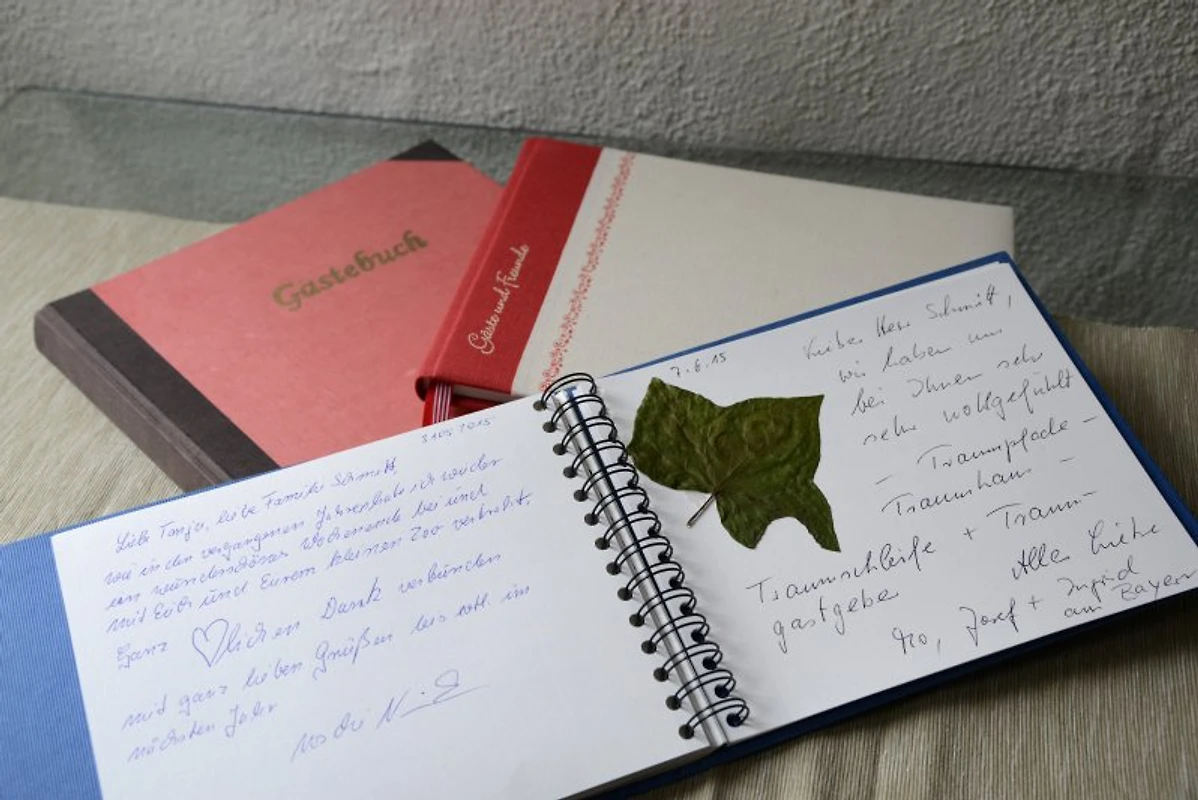 Gästebuch
Gäste und Freunde
31.05.2015
Liebe Tanja, liebe Familie Schmitt,
wie in den vergangenen Jahren habe ich wieder
ein wunderschönes Wochenende bei und
mit Euch und Eurem kleinen Zoo verbracht.
Ganz ♡lichen Dank verbunden
mit ganz lieben Grüßen bis vtl. im
nächsten Jahr
7.6.15
Lieber Herr Schmitt,
wir haben uns
bei Ihnen sehr
sehr wohlgefühlt
- Traumpfade -
Traumhaus -
Traumschleife + Traum-
gastgeber
Alles Liebe
Josef + Ingrid
aus Bayern